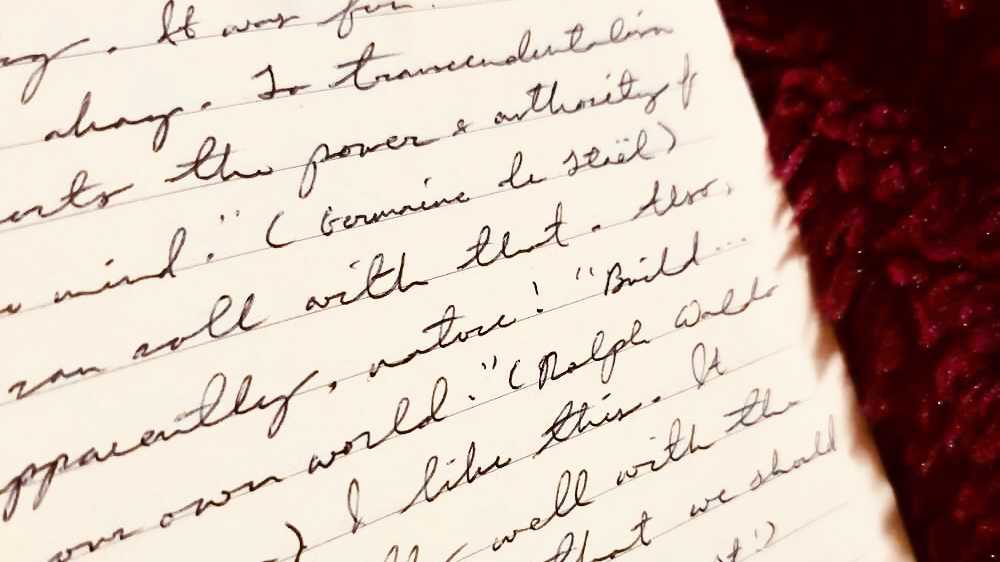 It was fun.
ahoy. To transcendentalism
the power & authority of
mind." (Germaine de Stäel)
can roll with that. Also,
apparently, nature! "Build...
our own world." (Ralph Waldo
) I like this. It
well with the
that we should